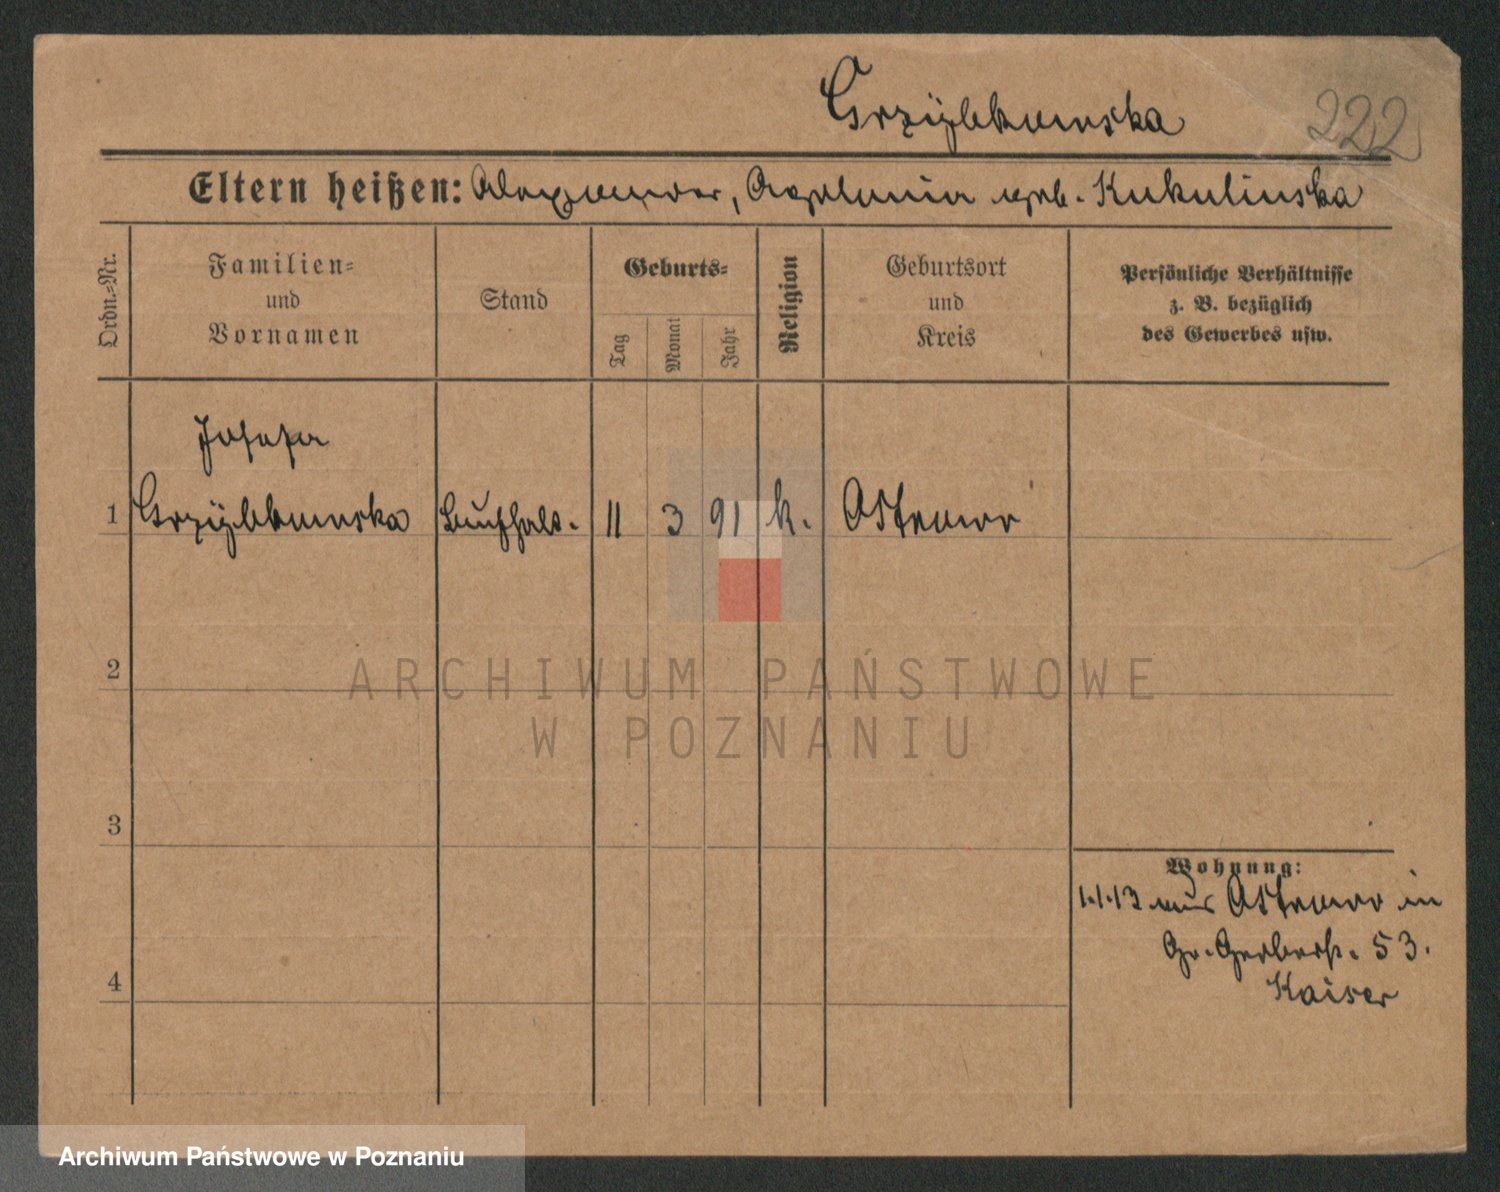 Grzybkowska
222
Eltern heißen: Alexander, Apolonia geb. Kukulinska
Ordn.-Nr.
Familien-
und
Vornamen
Stand
Geburts-
Tag
Monat
Jahr
Religion
Geburtsort
und
Kreis
Persönliche Verhältnisse
z. B. bezüglich
des Gewerbes usw.
Josefa
1 Grzybkowska Buchhalt. 11 3 91 k. Ostrowo
2
ARCHIWUM PAŃSTWOWE
W POZNANIU
3
Wohnung:
1.1.13 aus Ostrowo in
Gr. Gerberstr. 53.
Kaiser
4
Archiwum Państwowe w Poznaniu